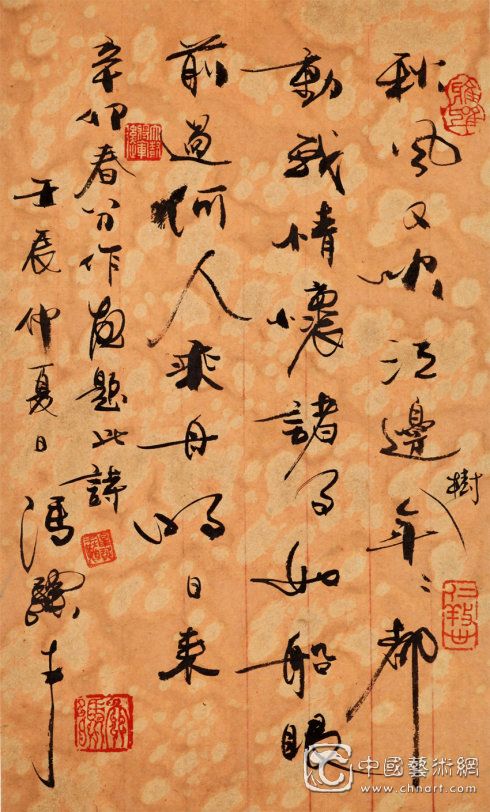 秋风又吹江邊樹年々都
動我情懷諸事如船眼
前過何人乘舟明日來
辛卯春分作画題此詩
壬辰仲夏日馮驥才
中國藝術網
www.chnart.com